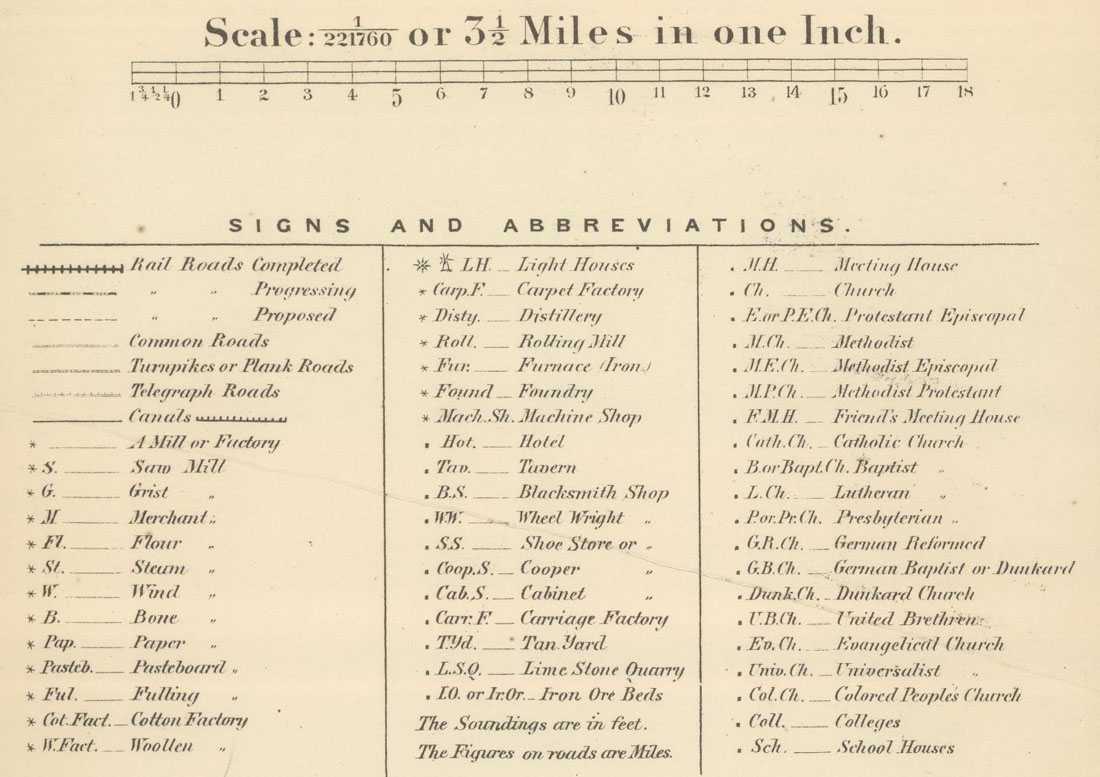 Scale: 1/221760 or 3 1/2 Miles in one Inch.
1 3/4 1/2 1/4 0 1 2 3 4 5 6 7 8 9 10 11 12 13 14 15 16 17 18
SIGNS AND ABBREVIATIONS.
Rail Roads Completed
" " Progressing
" " Proposed
Common Roads
Turnpikes or Plank Roads
Telegraph Roads
Canals
* A Mill or Factory
* S. Saw Mill
* G. Grist "
* M Merchant "
* Fl. Flour "
* St. Steam "
* W. Wind "
* B. Bone "
* Pap. Paper "
* Pasteb. Pasteboard "
* Ful. Fulling "
* Cot. Fact. Cotton Factory
* W. Fact. Woollen "
* LH. Light Houses
* Carp. F. Carpet Factory
* Disty. Distillery
* Roll. Rolling Mill
* Fur. Furnace (Iron)
* Found Foundry
* Mach. Sh. Machine Shop
. Hot. Hotel
. Tav. Tavern
. B.S. Blacksmith Shop
. W.W. Wheel Wright "
. S.S. Shoe Store or "
. Coop. S. Cooper "
. Cab. S. Cabinet "
. Carr. F. Carriage Factory
. T.Yd. Tan Yard
. L.S.Q. Lime Stone Quarry
. I.O. or Ir. Or. Iron Ore Beds
The Soundings are in feet.
The Figures on roads are Miles.
. M.H. Meeting House
. Ch. Church
. E. or P.E. Ch. Protestant Episcopal
. M. Ch. Methodist
. M.E. Ch. Methodist Episcopal
. M.P. Ch. Methodist Protestant
. F.M.H. Friend's Meeting House
. Cath. Ch. Catholic Church
. B. or Bapt. Ch. Baptist "
. L. Ch. Lutheran "
. P. or Pr. Ch. Presbyterian "
. G.R. Ch. German Reformed
. G.B. Ch. German Baptist or Dunkard
. Dunk. Ch. Dunkard Church
. U.B. Ch. United Brethren
. Ev. Ch. Evangelical Church
. Univ. Ch. Universalist "
. Col. Ch. Colored People's Church
. Coll. Colleges
. Sch. School Houses